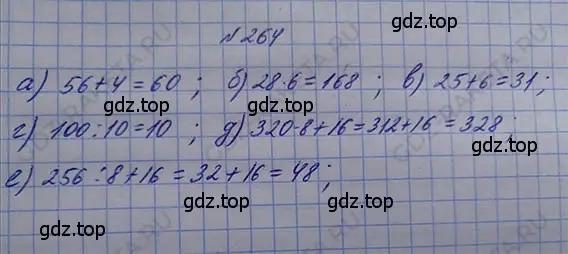 №264
а) 56+4=60; б) 28·6=168; в) 25+6=31;
г) 100:10=10; д) 320-8+16=312+16=328;
е) 256:8+16=32+16=48;
gdz.top
gdz.top
gdz.top
gdz.top
gdz.top
gdz.top
gdz.top